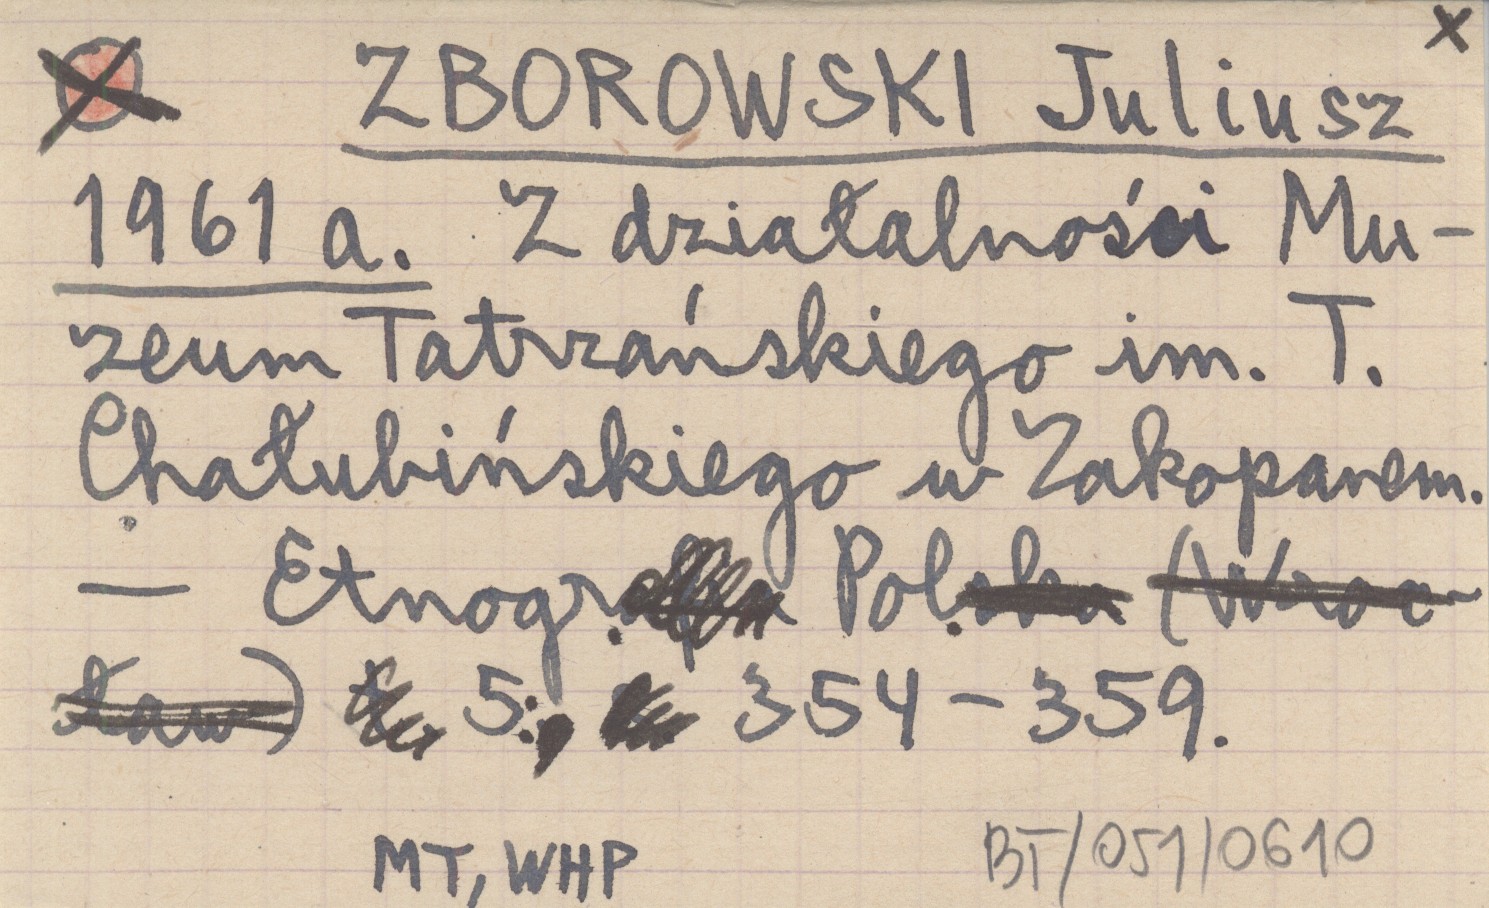 x
ZBOROWSKI Juliusz
1961 a. Z działalności Mu-
zeum Tatrzańskiego im. T.
Chałubińskiego w Zakopanem.
— Etnogr. Pol. (Wroc-
ław) 5:, 354-359.
MT, WHP
BT/051/0610